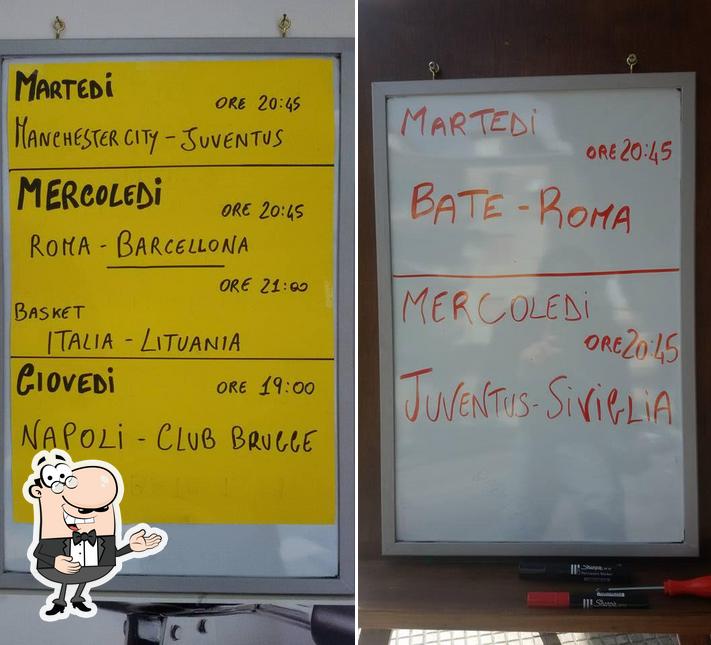 MARTEDI
ORE 20:45
MANCHESTER CITY - JUVENTUS
MERCOLEDI
ORE 20:45
ROMA - BARCELLONA
ORE 21:00
BASKET
ITALIA - LITUANIA
GIOVEDI
ORE 19:00
NAPOLI - CLUB BRUGGE
MARTEDI
ORE 20:45
BATE - ROMA
MERCOLEDI
ORE 20:45
JUVENTUS - SIVIGLIA
Sharpie
Sharpie